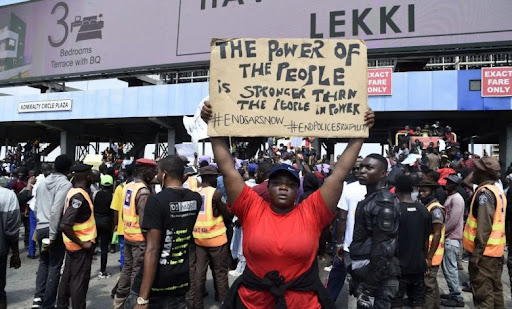 LEKKI
3
Bedrooms
Terrace with BQ
ADMIRALTY CIRCLE PLAZA
EXACT
FARE
ONLY
EXACT FARE
ONLY
THE POWER OF
THE PEOPLE
IS STRONGER THAN
THE PEOPLE IN POWER
#ENDSARSNOW